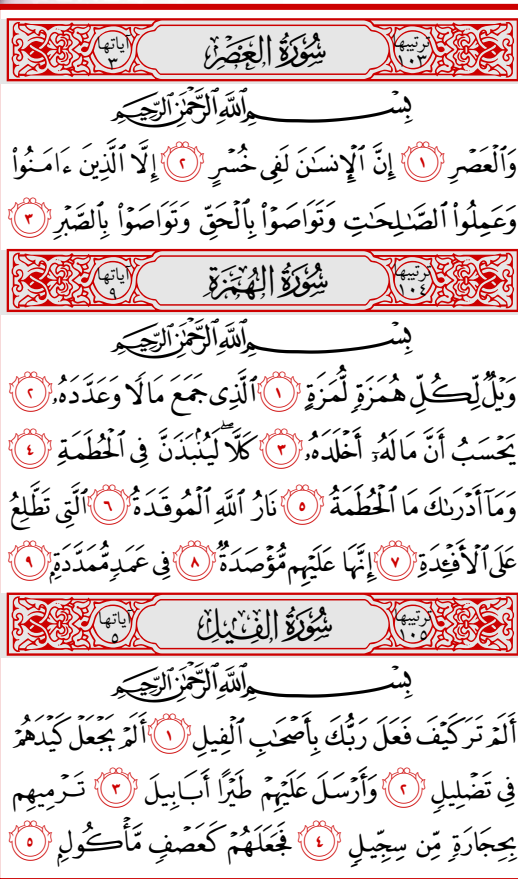 ترتيبها ١٠٣ سُورَةُ العَصْرِ آياتها ٣
بِسْمِ ٱللَّهِ ٱلرَّحْمَٰنِ ٱلرَّحِيمِ
وَٱلْعَصْرِ ١ إِنَّ ٱلْإِنسَٰنَ لَفِى خُسْرٍ ٢ إِلَّا ٱلَّذِينَ ءَامَنُوا۟
وَعَمِلُوا۟ ٱلصَّٰلِحَٰتِ وَتَوَاصَوْا۟ بِٱلْحَقِّ وَتَوَاصَوْا۟ بِٱلصَّبْرِ ٣
ترتيبها ١٠٤ سُورَةُ الهُمَزَةِ آياتها ٩
بِسْمِ ٱللَّهِ ٱلرَّحْمَٰنِ ٱلرَّحِيمِ
وَيْلٌ لِّكُلِّ هُمَزَةٍ لُّمَزَةٍ ١ ٱلَّذِى جَمَعَ مَالًا وَعَدَّدَهُۥ ٢
يَحْسَبُ أَنَّ مَالَهُۥٓ أَخْلَدَهُۥ ٣ كَلَّاۖ لَيُنۢبَذَنَّ فِى ٱلْحُطَمَةِ ٤
وَمَآ أَدْرَىٰكَ مَا ٱلْحُطَمَةُ ٥ نَارُ ٱللَّهِ ٱلْمُوقَدَةُ ٦ ٱلَّتِى تَطَّلِعُ
عَلَى ٱلْأَفْـِٔدَةِ ٧ إِنَّهَا عَلَيْهِم مُّؤْصَدَةٌ ٨ فِى عَمَدٍ مُّمَدَّدَةٍۭ ٩
ترتيبها ١٠٥ سُورَةُ الفِيلِ آياتها ٥
بِسْمِ ٱللَّهِ ٱلرَّحْمَٰنِ ٱلرَّحِيمِ
أَلَمْ تَرَ كَيْفَ فَعَلَ رَبُّكَ بِأَصْحَٰبِ ٱلْفِيلِ ١ أَلَمْ يَجْعَلْ كَيْدَهُمْ
فِى تَضْلِيلٍ ٢ وَأَرْسَلَ عَلَيْهِمْ طَيْرًا أَبَابِيلَ ٣ تَرْمِيهِم
بِحِجَارَةٍ مِّن سِجِّيلٍ ٤ فَجَعَلَهُمْ كَعَصْفٍ مَّأْكُولٍۭ ٥